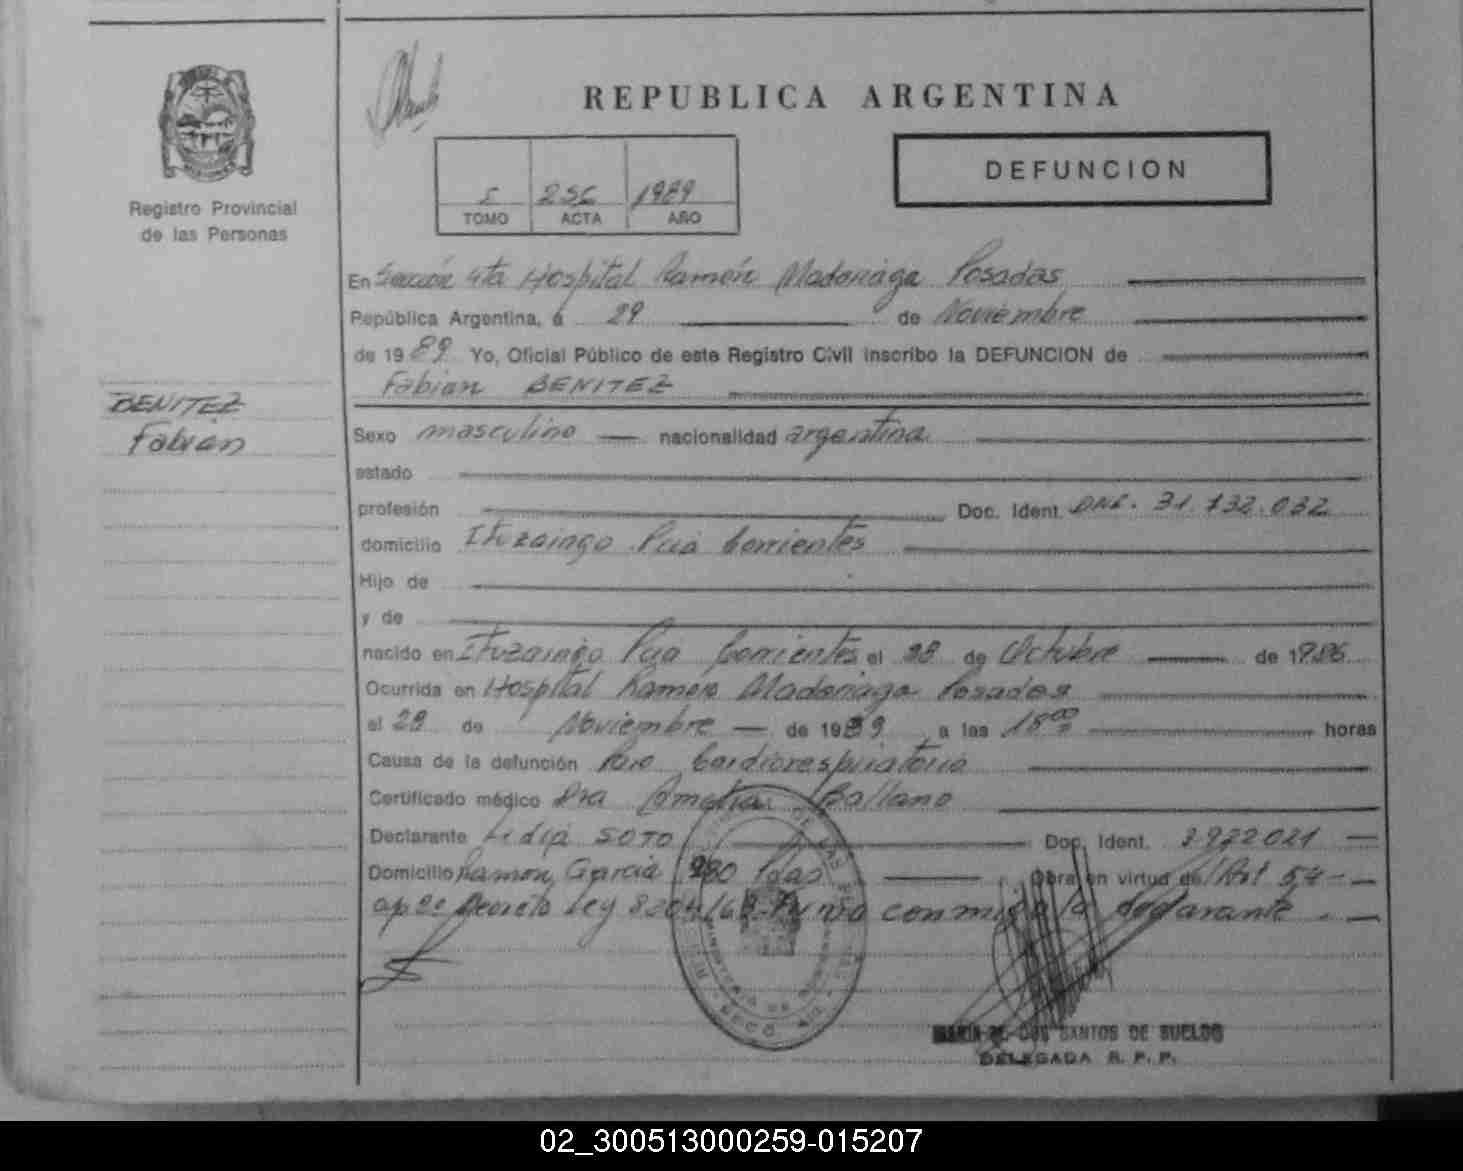 REPUBLICA ARGENTINA
DEFUNCION
1989
TOMO ACTA AÑO
Registro Provincial
de las Personas
En Sección 4ta Hospital Ramón Madariaga Posadas
República Argentina, a 29 de Noviembre
de 1989 Yo, Oficial Público de este Registro Civil inscribo la DEFUNCION de
Fabian BENITEZ
BENITEZ
Fabián
Sexo masculino nacionalidad argentina
estado
profesión Doc. Ident. DNI. 31.132.032
domicilio Ituzaingo Pcia Corrientes
Hijo de
y de
nacido en Ituzaingo Pcia Corrientes el 28 de Octubre de 1986
Ocurrida en Hospital Ramon Madariaga Posadas
el 29 de Noviembre de 1989 a las 18:00 horas
Causa de la defunción Paro Cardiorespiratorio
Certificado médico Dra Ballano
Declarante Lidia SOTO Doc. Ident. 3922021
Domicilio Ramon Garcia 280 Pdas Obra en virtud de Art 54
ap 2º Decreto Ley 8204/63- Firma conmigo la declarante
DOS SANTOS DE SUELDO
DELEGADA R. P. P.
02_300513000259-015207